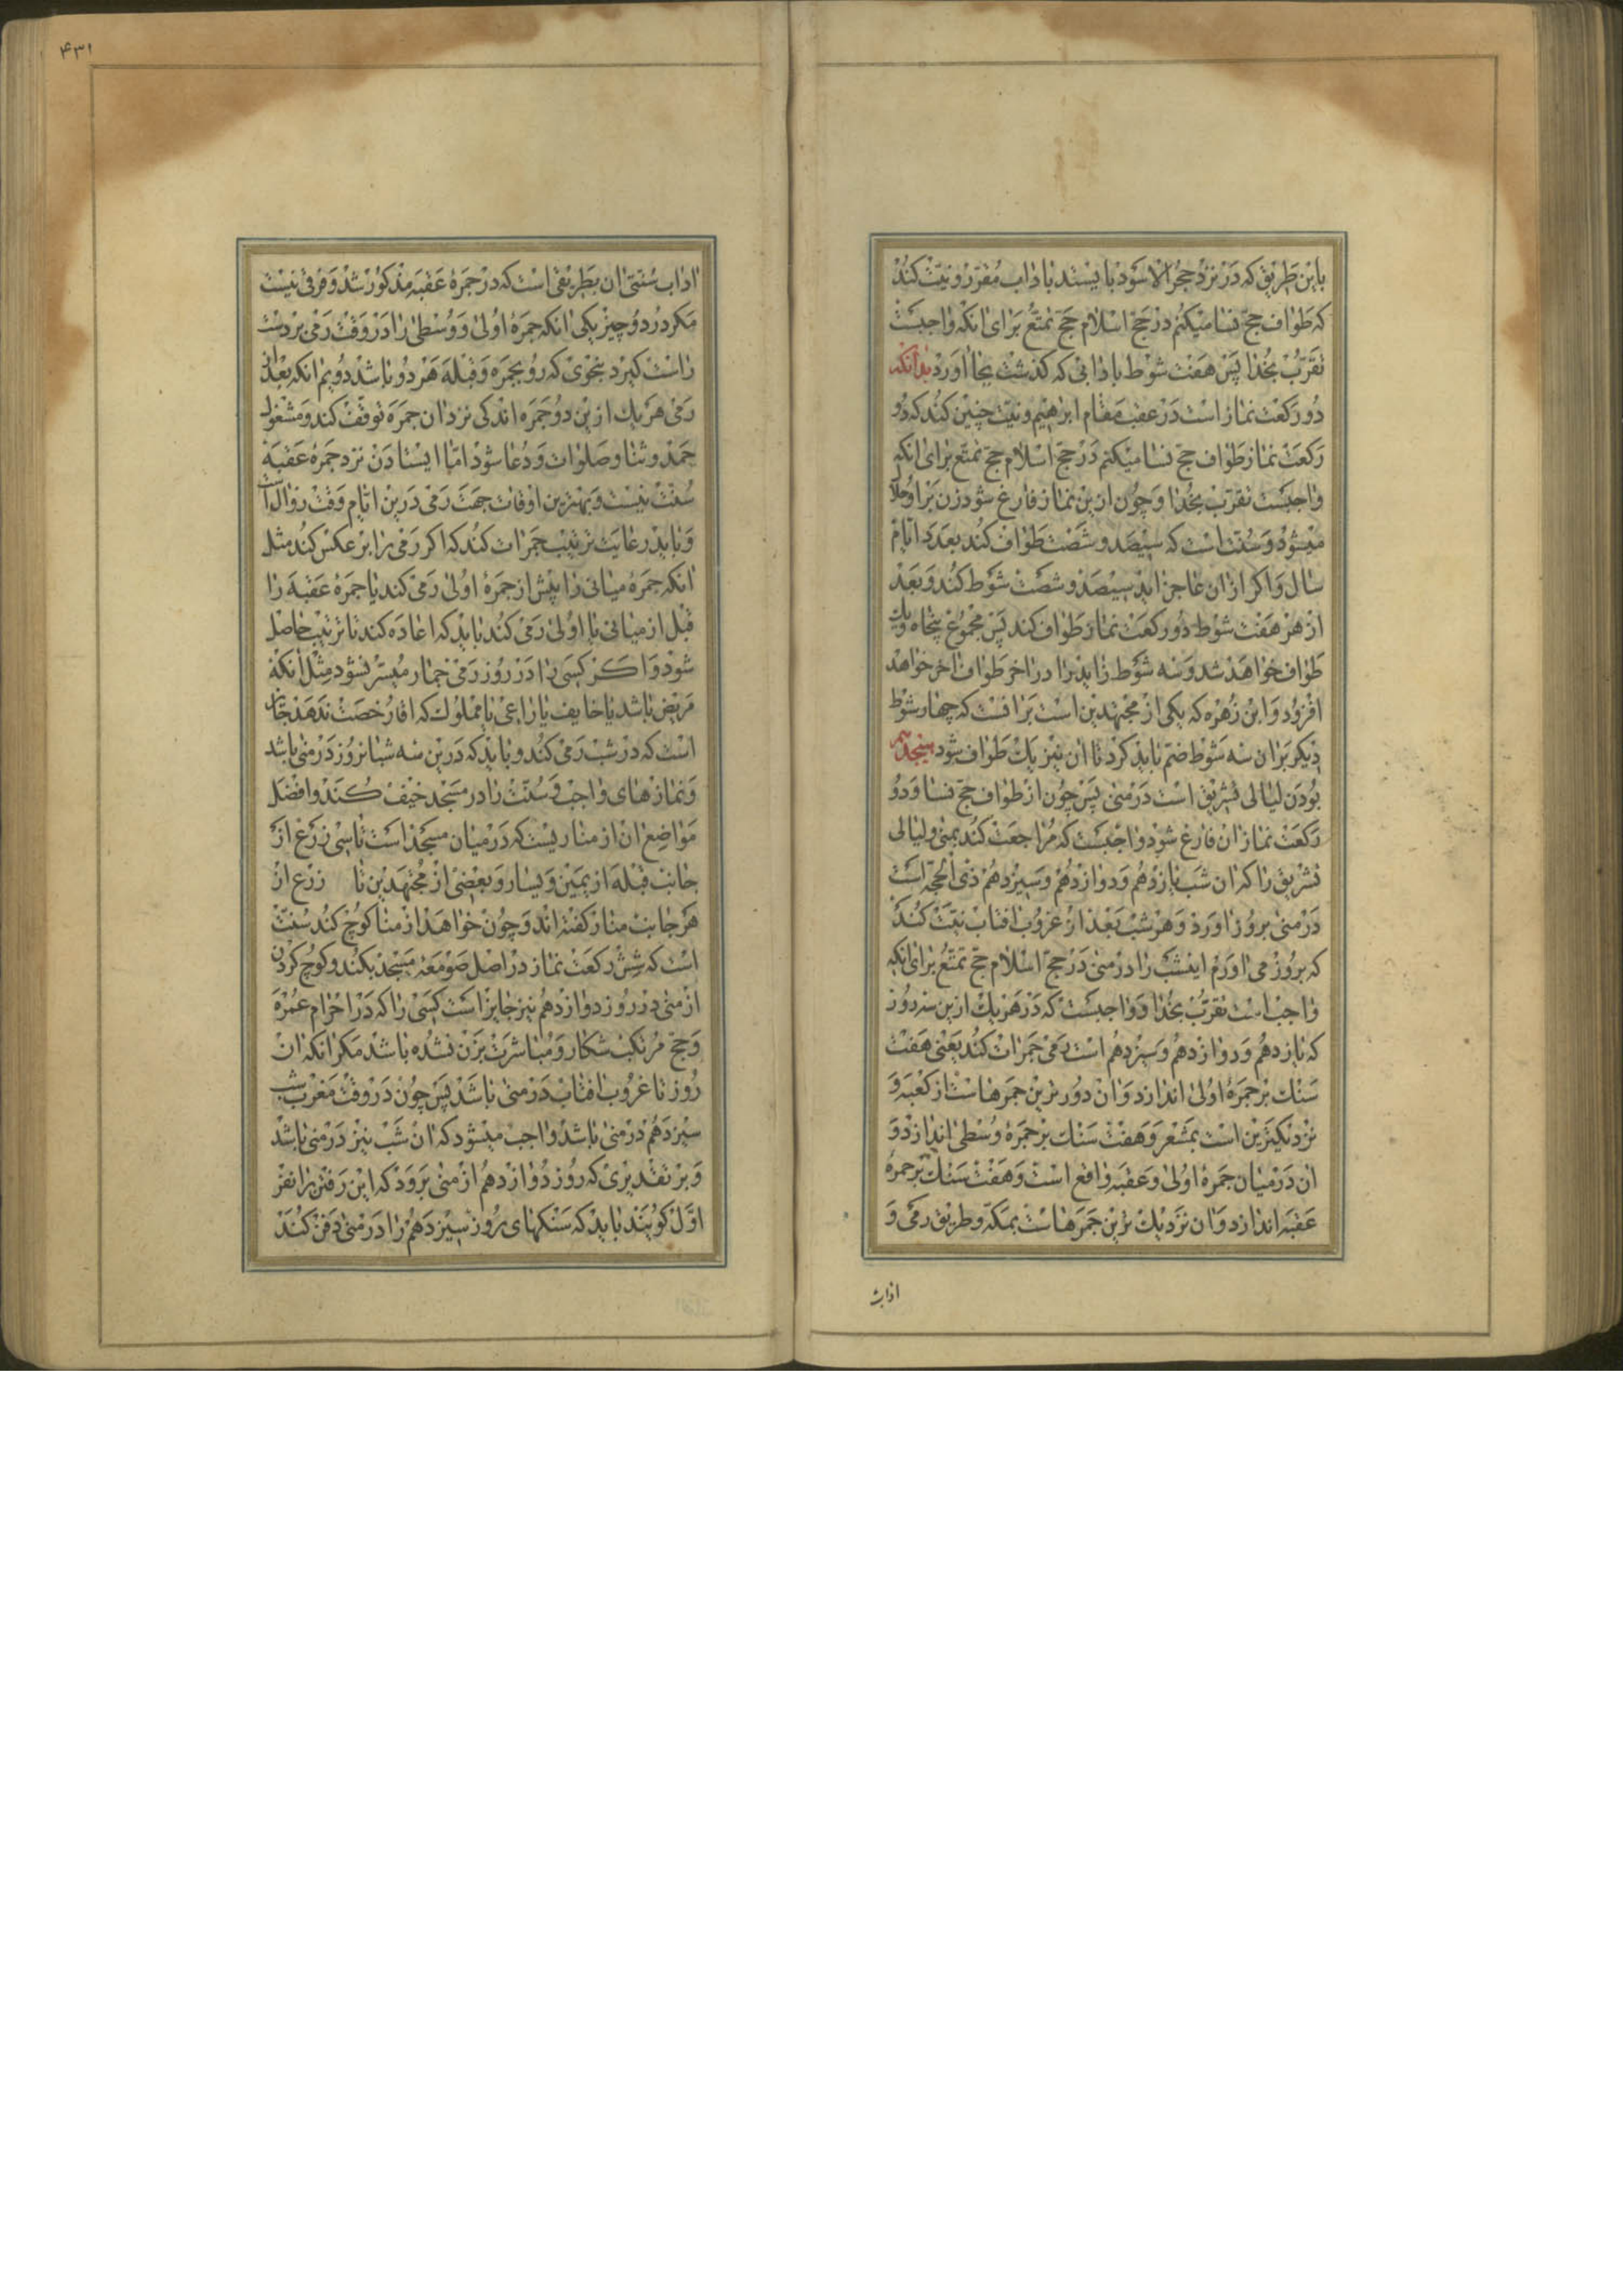 باین طریق که در نزد حجر الاسود بایستد باداب مقرر و نیت کند
که طواف حج نسا میکنم در حج اسلام حج تمتع برای انکه واجبست
تقرب بخدا پس هفت شوط بادابی که کذشت بجا اورد بدانکه
دو رکعت نماز است در عقب مقام ابرهیم و نیت چنین کند که دو
رکعت نماز طواف حج نسا میکنم در حج اسلام حج تمتع برای انکه
واجبست تقرب بخدا و چون ازین نماز فارغ شود زن بر او حلال
میشود و سنت است که سیصد و شصت طواف کند بعدد ایام
سال و اکر ازان عاجز اید سیصد و شصت شوط کند و بعد
از هر هفت شوط دو رکعت نماز طواف کند پس مجموع پنجاه و یک
طواف خواهد شد و سه شوط زاید را در اخر طواف اخر خواهد
افزود و ابن زهره که یکی از مجتهدین است برانست که چهار شوط
دیکر بران سه شوط ضم باید کرد تا ان نیز یک طواف شود هیجدهم
بودن لیالی تشریق است در منی پس چون از طواف حج نسا و دو
رکعت نماز ان فارغ شود واجبست که مراجعت کند بمنی و لیالی
تشریق را که ان شب یازدهم و دوازدهم و سیزدهم ذی الحجه است
در منی بروز اورد و هر شب بعد از غروب افتاب نیت کند
که بروز می اورم ایشب را در منی در حج اسلام حج تمتع برای انکه
واجب است تقرب بخدا و واجبست که در هر یک ازین سه روز
که یازدهم و دوازدهم و سیزدهم است رمی جمرات کند یعنی هفت
سنک بر جمرهٔ اولی اندازد و ان دور ترین جمرهاست از کعبه و
نزدیکترین است بمشعر و هفت سنک بر جمرهٔ وسطی اندازد و
ان در میان جمرهٔ اولی و عقبه واقع است و هفت سنک بر جمرهٔ
عقبه اندازد و ان نزدیک ترین جمرهاست بمکه و طریق رمی و
اداب
۴۳۱
اداب سنتی ان بطریقی است که در جمرهٔ عقبه مذکور شد و فرقی نیست
مکر در دو چیز یکی انکه جمرهٔ اولی و وسطی را در وقت رمی بر دست
راست کیرد بنحوی که رو بجمره و قبله هر دو باشد دویم انکه بعد از
رمی هر یک ازین دو جمره اندکی نزد ان جمره توقف کند و مشغول
حمد و ثنا و صلوات و دعا شود اما ایستادن نزد جمرهٔ عقبه
سنت نیست و بهترین اوقات جهت رمی درین ایام وقت زوال است
و باید رعایت ترتیب جمرات کند که اکر رمی را بر عکس کند مثل
انکه جمرهٔ میانی را پیش از جمرهٔ اولی رمی کند یا جمرهٔ عقبه را
قبل از میانی یا اولی رمی کند باید که اعاده کند تا ترتیب حاصل
شود و اکر کسی را در روز رمی جمار میسر نشود مثل انکه
مریض باشد یا خایف یا راعی یا مملوک که اقا رخصت ندهد جایز
است که در شب رمی کند و باید که درین سه شبانروز در منی باشد
و نمازهای واجب و سنت را در مسجد خیف کند و افضل
مواضع ان از مناریست که در میان مسجد است تا سی زرع از
جانب قبله از یمین و یسار و بعضی از مجتهدین تا زرع از
هر جانب منار کفته اند و چون خواهد از منا کوچ کند سنت
است که شش رکعت نماز در اصل صومعه مسجد بکند و کوچ کردن
از منی در روز دوازدهم نیز جایز است کسی را که در احرام عمره
و حج مرتکب شکار و مباشرت بزن نشده باشد مکر انکه ان
روز تا غروب افتاب در منی باشد پس چون در وقت مغرب شب
سیزدهم در منی باشد واجب میشود که ان شب نیز در منی باشد
و بر تقدیری که روز دوازدهم از منی برود که این رفتن را نفر
اول کویند باید که سنکهای روز سیزدهم را در منی دفن کند